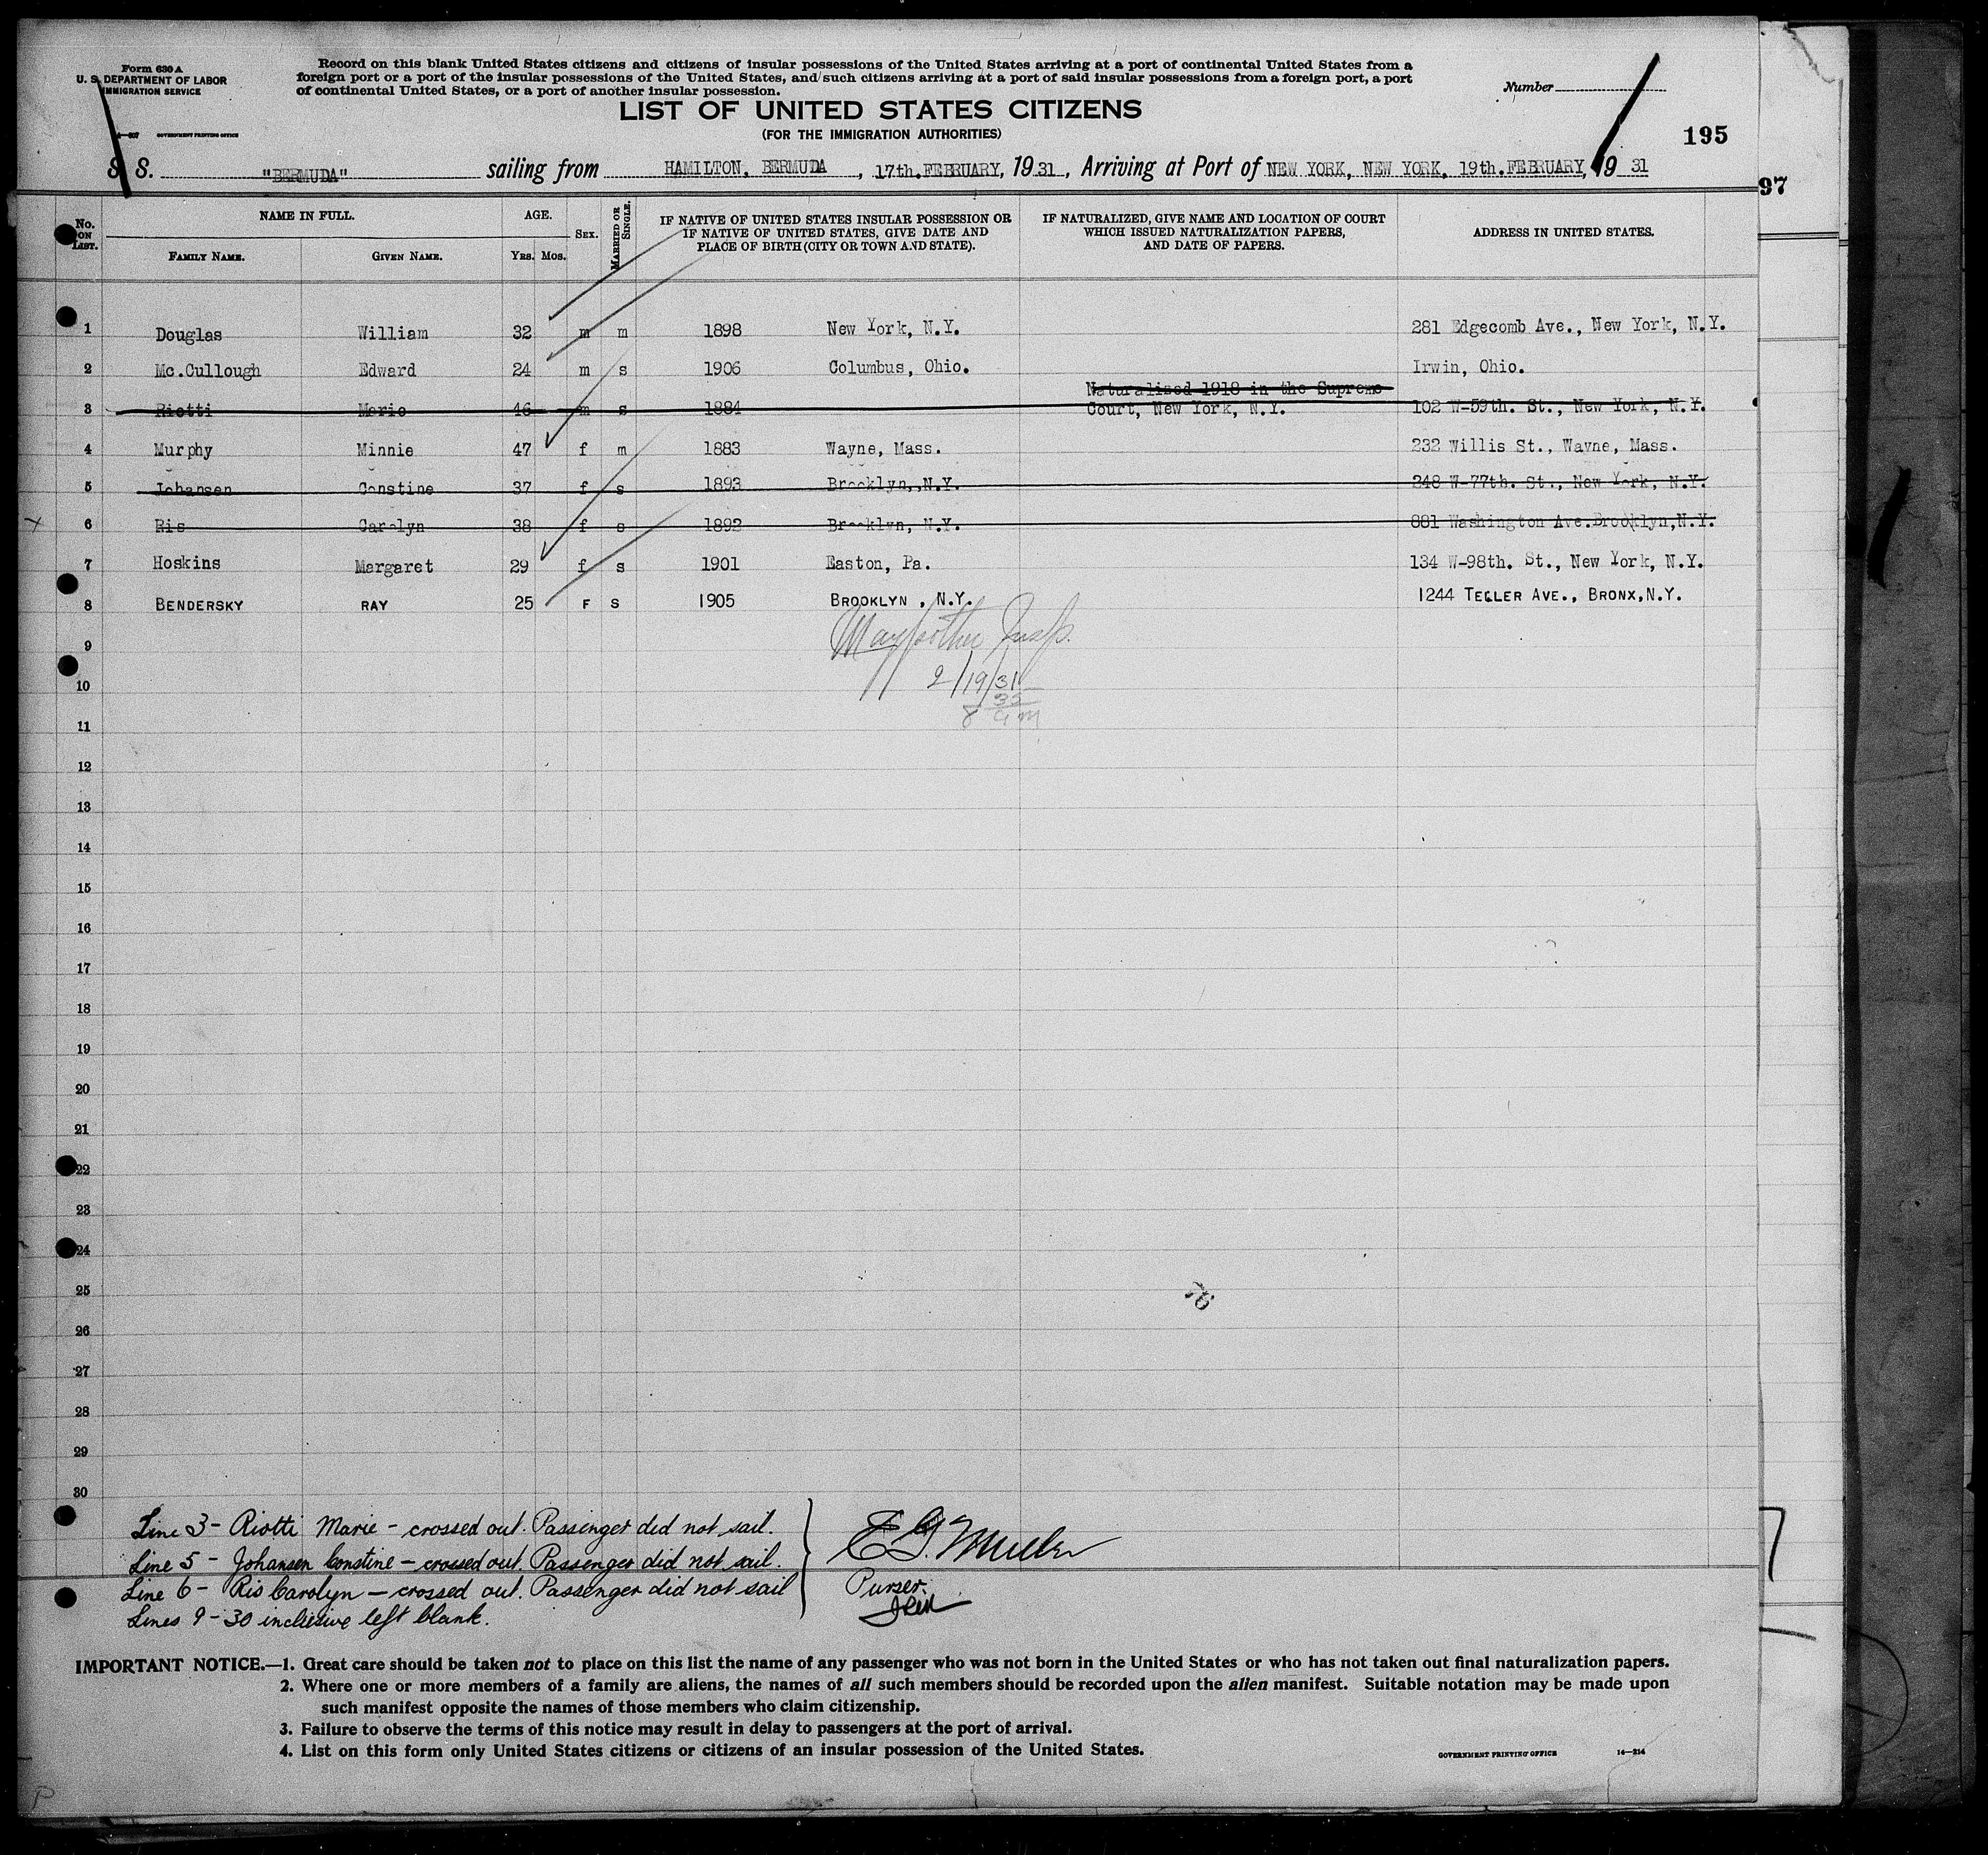 Form 630 A
U. S. DEPARTMENT OF LABOR
IMMIGRATION SERVICE
GOVERNMENT PRINTING OFFICE
Record on this blank United States citizens and citizens of insular possessions of the United States arriving at a port of continental United States from a
foreign port or a port of the insular possessions of the United States, and such citizens arriving at a port of said insular possessions from a foreign port, a port
of continental United States, or a port of another insular possession.
Number
LIST OF UNITED STATES CITIZENS
(FOR THE IMMIGRATION AUTHORITIES)
195
S. S. "BERMUDA" sailing from HAMILTON, BERMUDA, 17th.FEBRUARY, 1931, Arriving at Port of NEW YORK, NEW YORK, 19th.FEBRUARY, 19 31
97
No. ON LIST. NAME IN FULL. AGE. SEX. MARRIED OR SINGLE. IF NATIVE OF UNITED STATES INSULAR POSSESSION OR IF NATIVE OF UNITED STATES, GIVE DATE AND PLACE OF BIRTH (CITY OR TOWN AND STATE). IF NATURALIZED, GIVE NAME AND LOCATION OF COURT WHICH ISSUED NATURALIZATION PAPERS, AND DATE OF PAPERS. ADDRESS IN UNITED STATES.
FAMILY NAME. GIVEN NAME. YRS. MOS.
1 Douglas William 32 m m 1898 New York, N.Y. 281 Edgecomb Ave., New York, N.Y.
2 Mc.Cullough Edward 24 m s 1906 Columbus, Ohio. Irwin, Ohio.
Naturalized 1918 in the Supreme
3 Riotti Marie 46 m s 1884 Court, New York, N.Y. 102 W-59th. St., New York, N.Y.
4 Murphy Minnie 47 f m 1883 Wayne, Mass. 232 Willis St., Wayne, Mass.
5 Johansen Constine 37 f s 1893 Brooklyn, N.Y. 248 W-77th. St., New York, N.Y.
6 Ris Carolyn 38 f s 1892 Brooklyn, N.Y. 881 Washington Ave.Brooklyn,N.Y.
7 Hoskins Margaret 29 f s 1901 Easton, Pa. 134 W-98th. St., New York, N.Y.
8 BENDERSKY RAY 25 F S 1905 BROOKLYN , N.Y. 1244 TELLER AVE., BRONX,N.Y.
9 Insp.
10 2/19/31
8 35 am
11
12
13
14
15
16
17
18
19
20
21
22
23
24
25
26
27
28
29
30
Line 3 - Riotti Marie - crossed out. Passenger did not sail.
Line 5 - Johansen Constine - crossed out. Passenger did not sail.
Line 6 - Ris Carolyn - crossed out. Passenger did not sail
Lines 9-30 inclusive left blank.
E G. Muller
Purser.
IMPORTANT NOTICE.—1. Great care should be taken not to place on this list the name of any passenger who was not born in the United States or who has not taken out final naturalization papers.
2. Where one or more members of a family are aliens, the names of all such members should be recorded upon the alien manifest. Suitable notation may be made upon
such manifest opposite the names of those members who claim citizenship.
3. Failure to observe the terms of this notice may result in delay to passengers at the port of arrival.
4. List on this form only United States citizens or citizens of an insular possession of the United States.
GOVERNMENT PRINTING OFFICE 14—214